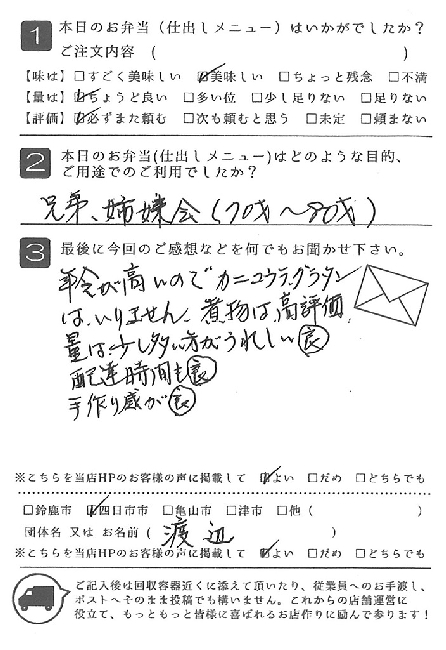 1 本日のお弁当（仕出しメニュー）はいかがでしたか？
ご注文内容 （ ）
【味は】□すごく美味しい ☑美味しい □ちょっと残念 □不満
【量は】☑ちょうど良い □多い位 □少し足りない □足りない
【評価】☑必ずまた頼む □次も頼むと思う □未定 □頼まない
2 本日のお弁当(仕出しメニュー)はどのような目的、
ご用途でのご利用でしたか？
兄弟、姉妹会（70才～80才）
3 最後に今回のご感想などを何でもお聞かせ下さい。
年令が高いのでカニコウラグラタン
は、いりません。煮物は、高評価
量は少し多い方がうれしい 良
配達時間も 良
手作り感が 良
※こちらを当店HPのお客様の声に掲載して ☑よい □だめ □どちらでも
□鈴鹿市 ☑四日市市 □亀山市 □津市 □他（ ）
団体名 又は お名前（ 渡辺 ）
※こちらを当店HPのお客様の声に掲載して ☑よい □だめ □どちらでも
ご記入後は回収容器近くに添えて頂いたり、従業員へのお手渡し、
ポストへそのまま投稿でも構いません。これからの店舗運営に
役立て、もっともっと皆様に喜ばれるお店作りに励んで参ります！